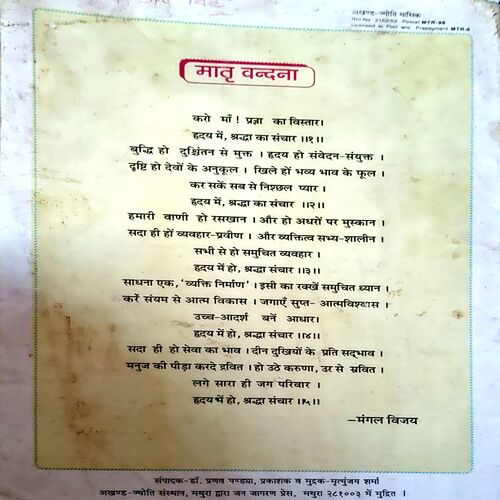 अखण्ड-ज्योति मासिक
Regd No. 2162/52 Postal MTR-98
Licensed to Post and Prepayment MTR-8
मातृ वन्दना
करो माँ! प्रज्ञा का विस्तार।
हृदय में, श्रद्धा का संचार ।।१।।
बुद्धि हो दुश्चिंतन से मुक्त । हृदय हो संवेदन-संयुक्त ।
दृष्टि हो देवों के अनुकूल । खिले हों भव्य भाव के फूल ।
कर सकें सब से निश्छल प्यार ।
हृदय में, श्रद्धा का संचार ।।२।।
हमारी वाणी हो रसखान । और हो अधरों पर मुस्कान ।
सदा ही हों व्यवहार-प्रवीण । और व्यक्तित्व सभ्य-शालीन ।
सभी से हो समुचित व्यवहार ।
हृदय में हो, श्रद्धा संचार ।।३।।
साधना एक, 'व्यक्ति निर्माण' । इसी का रक्खें समुचित ध्यान ।
करें संयम से आत्म विकास । जगाएँ सुप्त- आत्मविश्वास ।
उच्च-आदर्श बनें आधार।
हृदय में हो, श्रद्धा संचार ।।४।।
सदा ही हो सेवा का भाव । दीन दुखियों के प्रति सद्भाव ।
मनुज की पीड़ा करदे द्रवित । हो उठे करुणा, उर से स्रवित ।
लगे सारा ही जग परिवार ।
हृदय में हो, श्रद्धा संचार ।।५।।
—मंगल विजय
संपादक-डॉ. प्रणव पण्ड्या, प्रकाशक व मुद्रक-मृत्युंजय शर्मा
अखण्ड-ज्योति संस्थान, मथुरा द्वारा जन जागरण प्रेस, मथुरा २८१००३ में मुद्रित ।